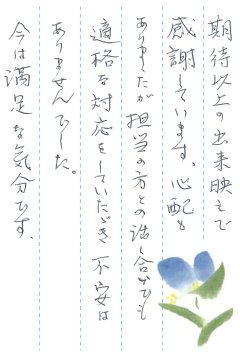 期待以上の出来映えで
感謝しています。心配も
ありましたが担当の方との話し合いでも
適格な対応をしていただき 不安は
ありませんでした。
今は満足な気分です。